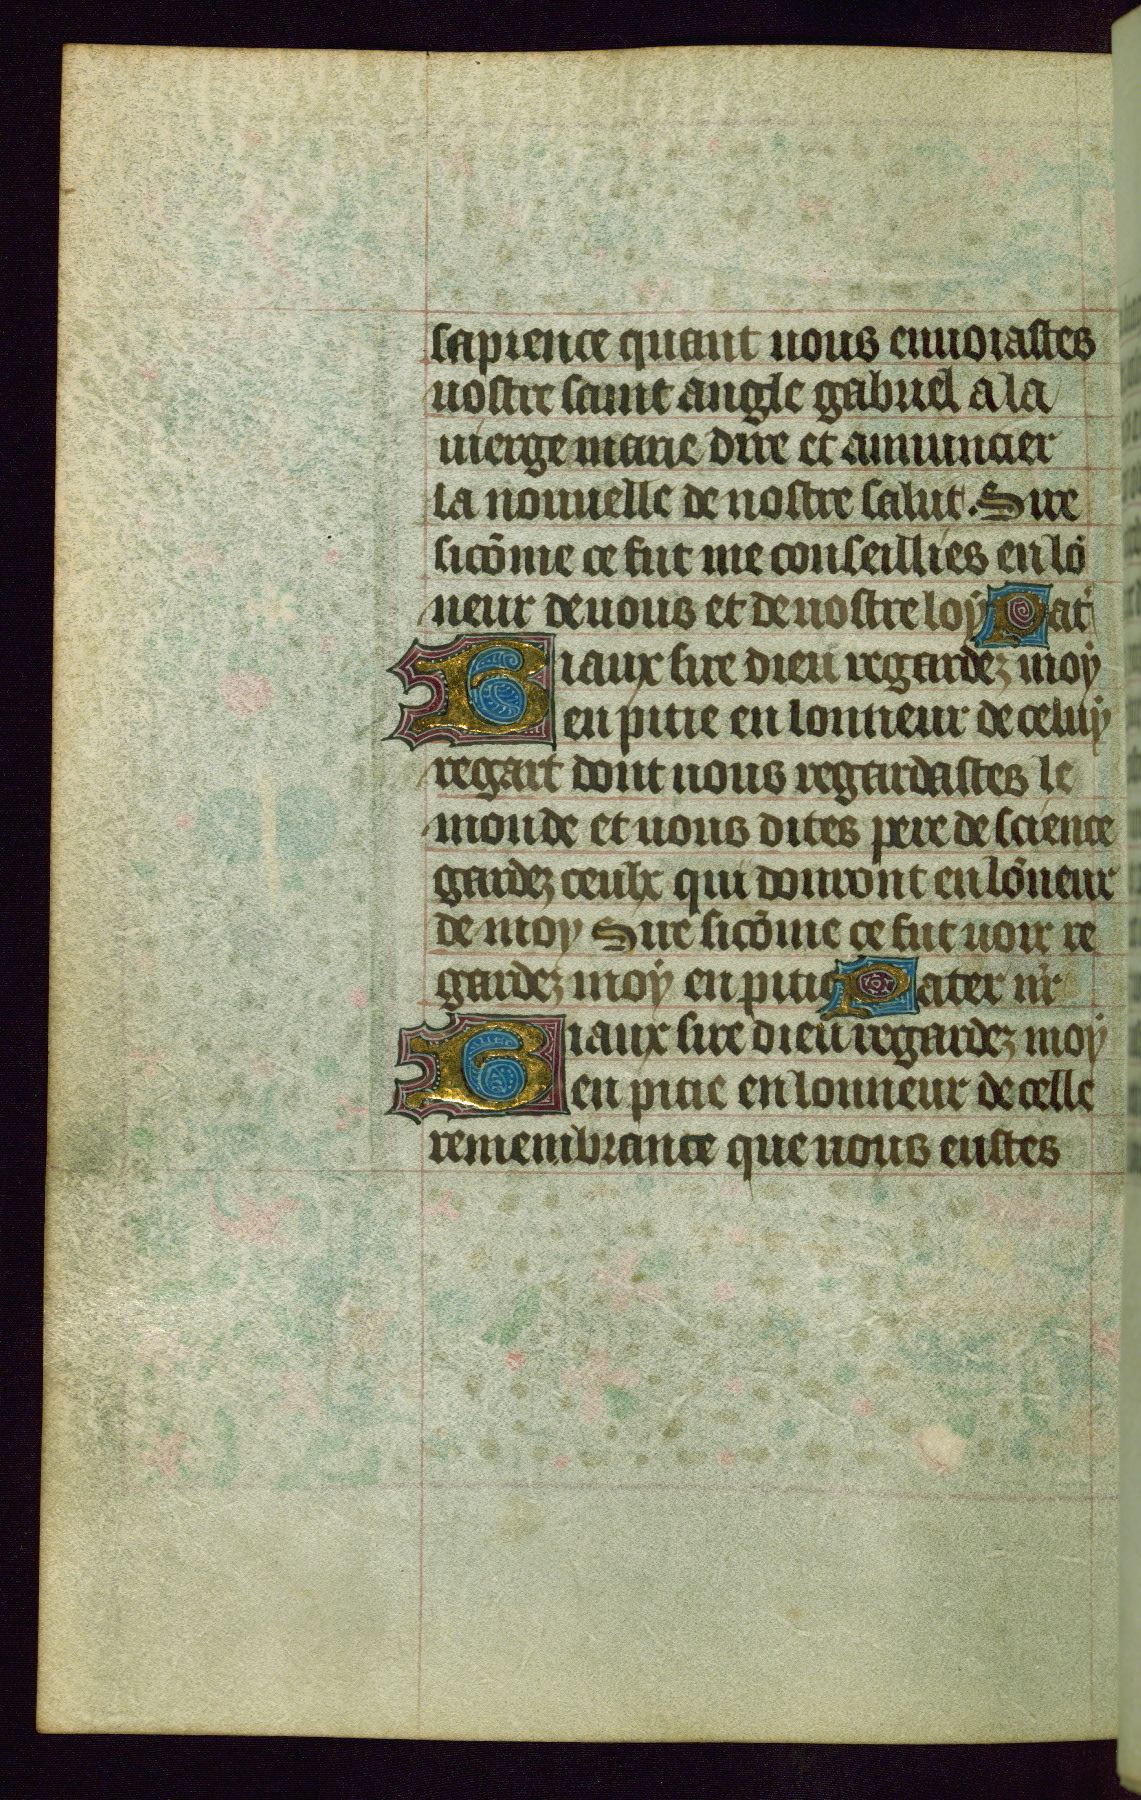 sapience quant uous enuoiastes
uostre saint angle gabriel a la
uierge marie dire et annuncier
la nouuelle de nostre salut. Sire
sicõme ce fut me conseillies en lõ
neur de uous et de uostre loy Pat'
Biaux sire dieu regardez moy
en pitie en lonneur de celuy
regart dont uous regardastes le
monde et uous dites pere de science
gardez ceulx qui douront en lõneur
de moy Sire sicõme ce fut uoir re
gardez moy en pitie Pater nr̃
Biaux sire dieu regardez moy
en pitie en lonneur de celle
remembrance que uous eustes